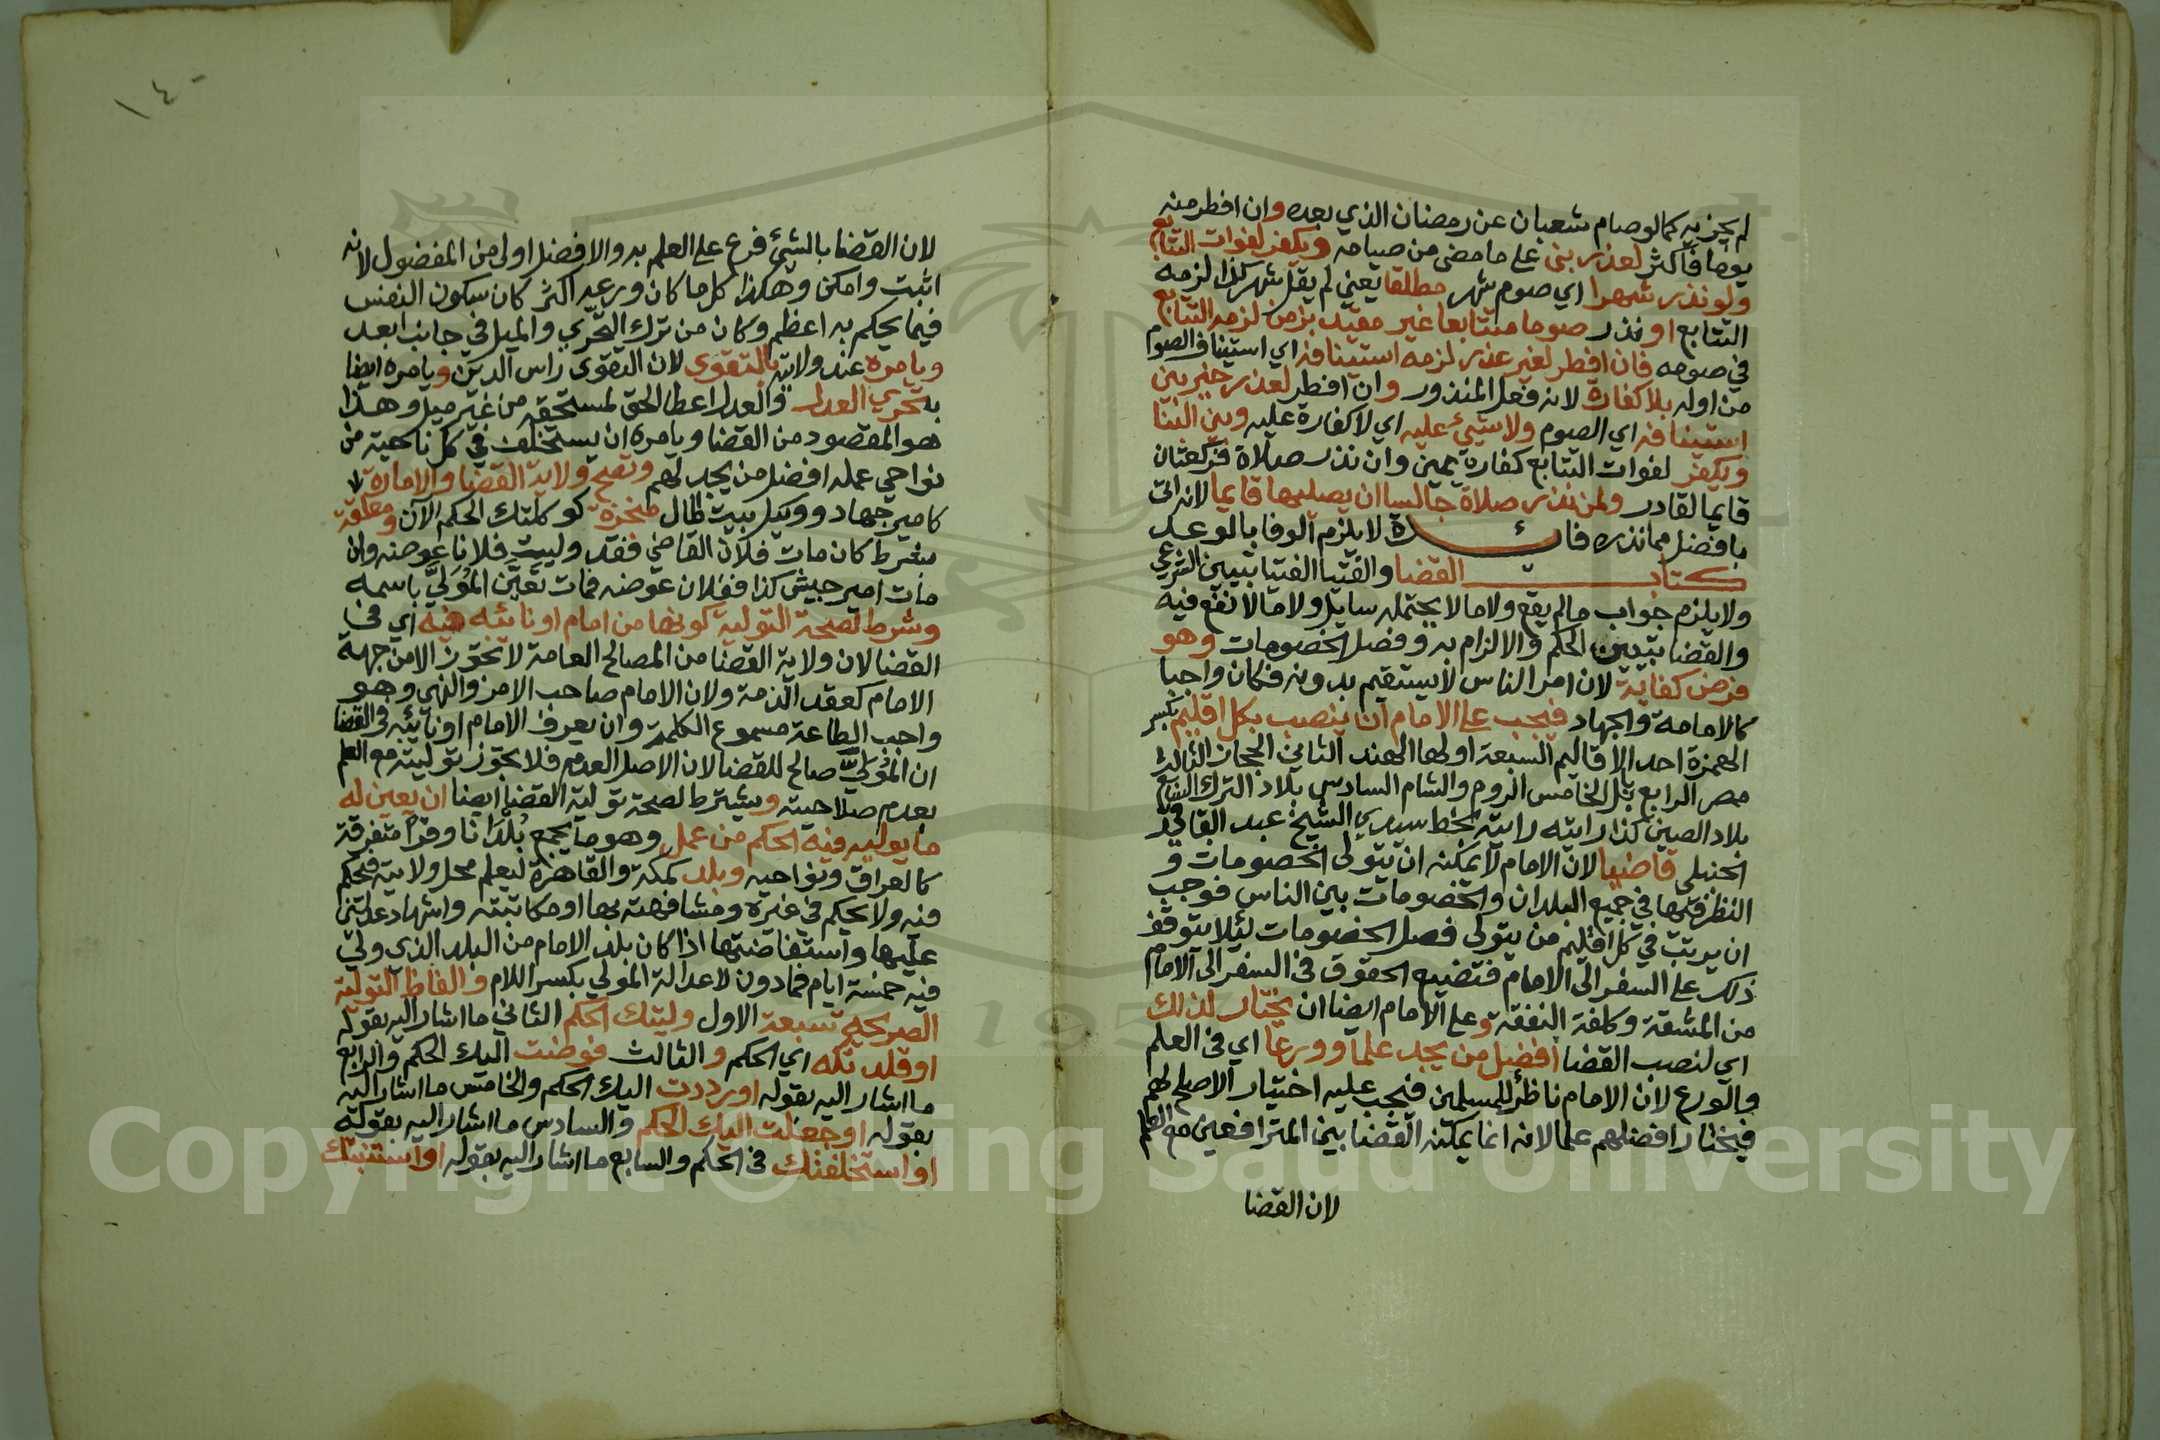 لم يجزيه كما لو صام شعبان عن رمضان الذي بعده وان افطر منه
يوما فاكثر لعذر بنى على ما مضى من صيامه ويكفر لفوات التتابع
ولو نذر شهرا اي صوم شهر مطلقا يعني لم يقل شهر كذا لزمه
التتابع او نذر صوما متتابعا غير مقيد بزمن لزمه التتابع
في صومه فان افطر لغير عذر لزمه استينافه اي استيناف الصوم
من اوله بلا كفارة لانه فعل المنذور وان افطر لعذر خير بين
استينافه اي الصوم ولا شيئ عليه اي لا كفارة عليه وبين البنا
ويكفر لفوات التتابع كفارة يمين وان نذر صلاة فركعتان
قايما لقادر ولمن نذر صلاة جالسا ان يصليها قايما لانه اتى
بافضل مما نذره فائدة لا يلزم الوفا بالوعد
كتاب القضا والفتيا الفتيا تبيين الشرعي
ولا يلزم جواب ما لم يقع ولا ما لا يحتمله سايل ولا ما لا نفع فيه
والقضا تبيين الحكم والالزام به وفصل الخصومات وهو
فرض كفاية لان امر الناس لا يستقيم بدونه فكان واجبا
كالامامة والجهاد فيجب على الامام ان ينصب بكل اقليم بكسر
الهمزة احد الاقاليم السبعة اولها الهند الثاني الحجاز الثالث
مصر الرابع بابل الخامس الروم والشام السادس بلاد الترك السابع
بلاد الصين كذا رايته رايته بخط سيدي الشيخ عبد القادر
الحنبلي قاضيا لان الامام لا يمكنه ان يتولى الخصومات و
النظر فيها في جميع البلدان والخصومات بين الناس فوجب
ان يرتب في كل اقليم من يتولى فصل الخصومات لئلا يتوقف
ذلك على السفر الى الامام فتضيع الحقوق في السفر الى الامام
من المشقة وكلفة النفقة وعلى الامام ايضا ان يختار لذلك
اي لنصب القضا افضل من يجد علما وورعا اي في العلم
والورع لان الامام ناظر للمسلمين فيجب عليه اختيار الاصلح لهم
فيختار افضلهم علما لانه انما يمكنه القضا بين المترافعين مع العلم
لان القضا
١٤٠
لان القضا بالشيئ فرع على العلم به والافضل اولى من المفضول لانه
اثبت وامكن وهكذا كل ما كان ورعه اكثر كان سكون النفس
فيما يحكم به اعظم وكان من ترك التحري والميل في جانب ابعد
ويامره عند ولايته بالتقوى لان التقوى راس الدين ويامره ايضا
بتحري العدل والعدل اعطا الحق لمستحقه من غير ميل وهذا
هو المقصود من القضا ويامره ان يستخلف في كل ناحية من
نواحي عمله افضل من يجد لهم وتصح ولاية القضا والامارة لا
كامير جهاد ووكيل بيت المال منجزة كوليتك الحكم الآن ومعلقة
بشرط كان مات فلان القاضي فقد وليت فلانا عوضه وان
مات امير جيش كذا ففلان عوضه فمات تعين المُوَلَّى باسمه
وشرط لصحة التولية كونها من امام او نائبه فيه اي في
القضا لان ولاية القضا من المصالح العامة لا تجوز الا من جهة
الامام كعقد الذمة ولان الامام صاحب الامر والنهي وهو
واجب الطاعة مسموع الكلمة وان يعرف الامام او نائبه في القضا
ان المُوَلَّى صالح للقضا لان الاصل العدم فلا يجوز توليته مع العلم
بعدم صلاحيته ويشترط لصحة تولية القضا ايضا ان يعين له
ما يوليه فيه الحكم من عمل وهو ما يجمع بُلدانا وقرًا متفرقة
كالعراق ونواحيه وبلد كمكة والقاهرة ليعلم محل ولايته فيحكم
فيه ولا يحكم في غيره ومشافهته بها او مكاتبته واشهاد عدلين
عليها واستفاضتها اذا كان بلد الامام من البلد الذي ولي
فيه خمسة ايام فما دون لا عدالة المولي بكسر اللام والفاظ التولية
الصريحة سبعة الاول وليتك الحكم الثاني ما اشار اليه بقوله
او قلدتكه اي الحكم والثالث فوضت اليك الحكم والرابع
ما اشار اليه بقوله او رددت اليك الحكم والخامس ما اشار اليه
بقوله او جعلت اليك الحكم والسادس ما اشار اليه بقوله
او استخلفتك في الحكم والسابع ما اشار اليه بقوله او استنبتك
Copyright © King Saud University
195